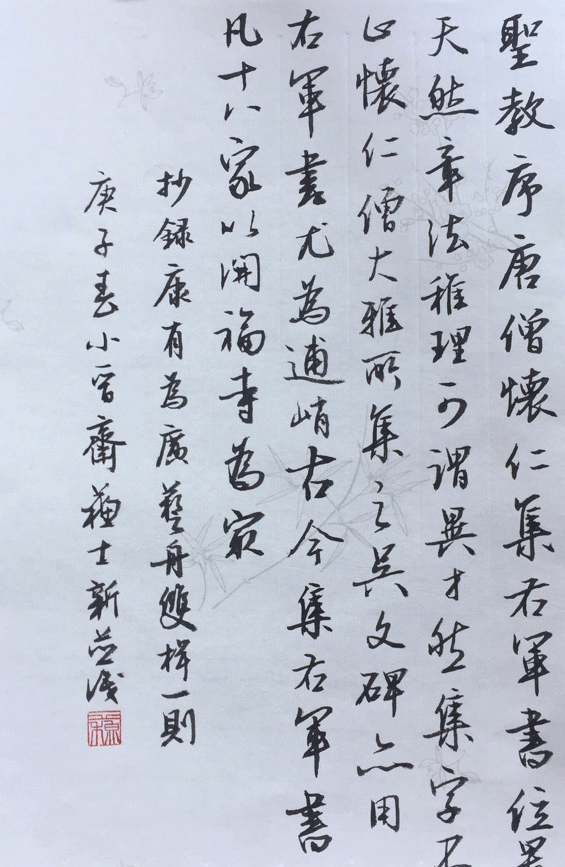 聖教序唐僧懷仁集右軍書位置
天然章法秩理可謂異才然集字不
止懷仁僧大雅所集之吳文碑亦用
右軍書尤為逋峭古今集右軍書
凡十八家以開福寺為最
抄錄康有為廣藝舟雙楫一則
庚子春小晉齋蘇士新並識